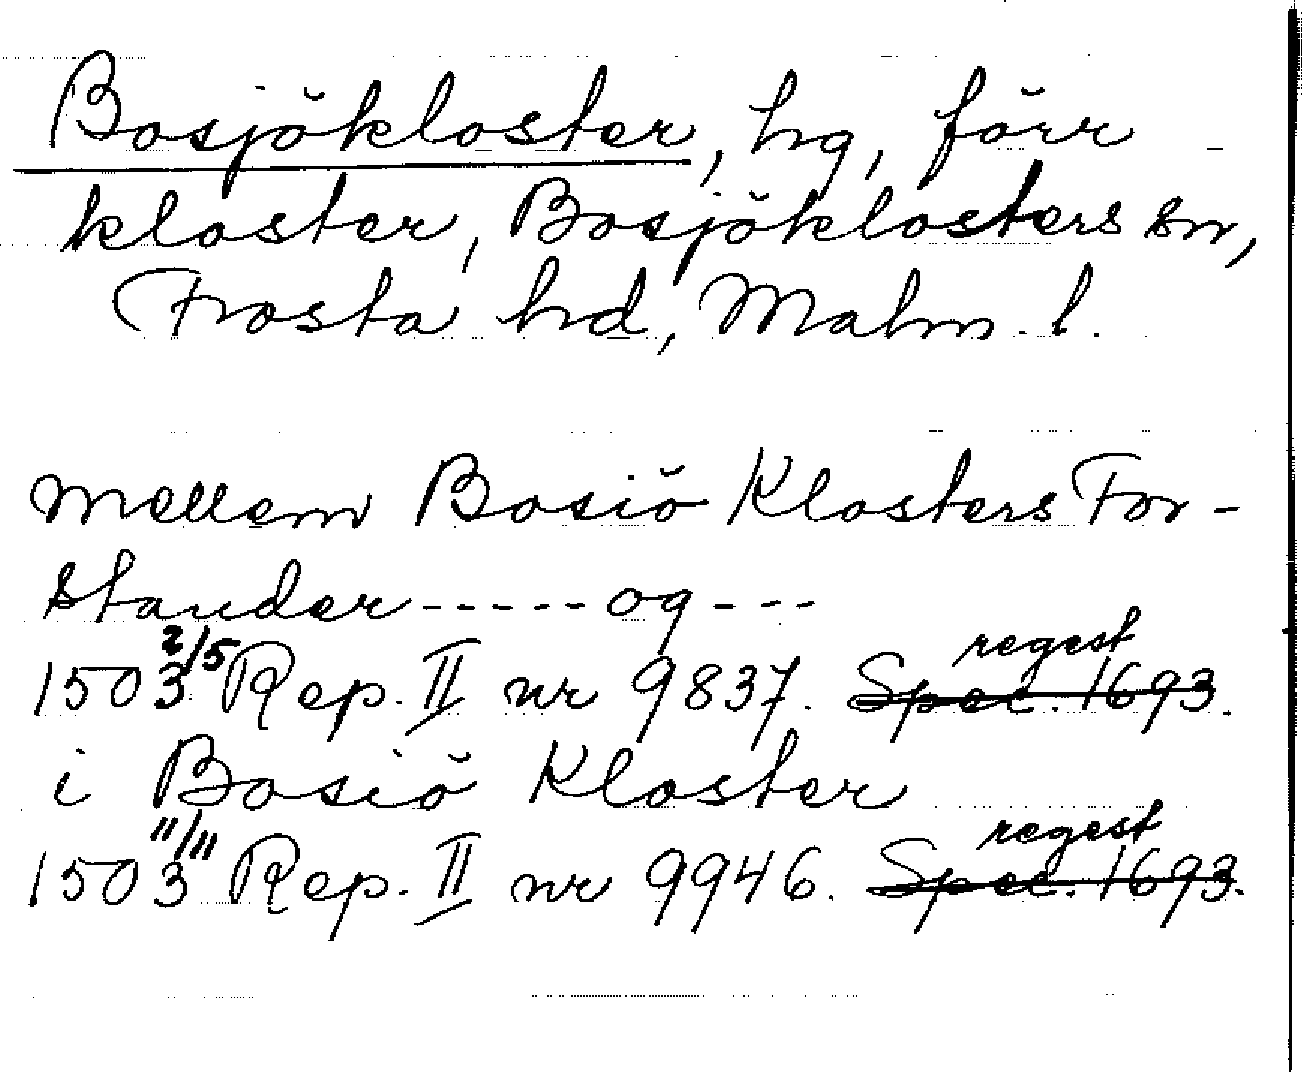 Bosjökloster, hg, förr
kloster, Bosjöklosters sn,
Frosta hd, Malm. l.
mellem Bosiö Klosters For-
stander-----og---
1503 2/5 Rep. II nr 9837. Spec. 1693. regest
i Bosiö Kloster
1503 11/11 Rep. II nr 9946. Spec. 1693. regest